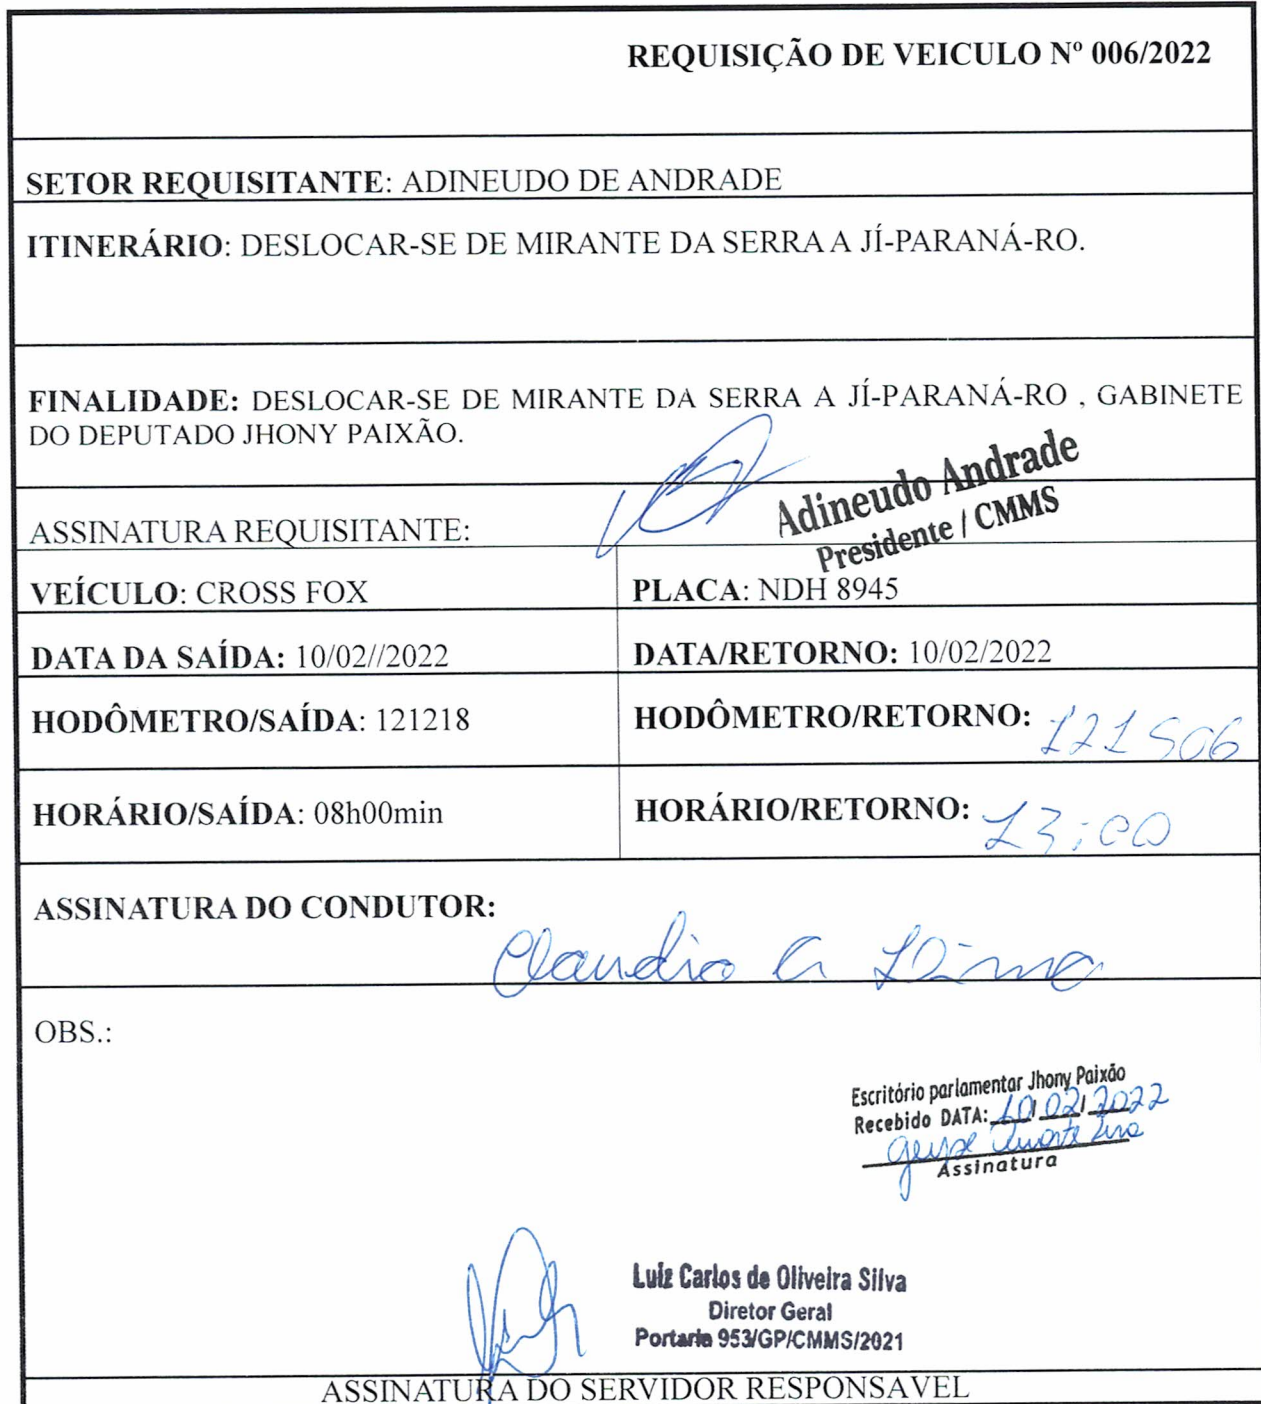 REQUISIÇÃO DE VEICULO Nº 006/2022
SETOR REQUISITANTE: ADINEUDO DE ANDRADE
ITINERÁRIO: DESLOCAR-SE DE MIRANTE DA SERRA A JÍ-PARANÁ-RO.
FINALIDADE: DESLOCAR-SE DE MIRANTE DA SERRA A JÍ-PARANÁ-RO , GABINETE
DO DEPUTADO JHONY PAIXÃO.
Adineudo Andrade
Presidente / CMMS
ASSINATURA REQUISITANTE:
VEÍCULO: CROSS FOX
PLACA: NDH 8945
DATA DA SAÍDA: 10/02//2022
DATA/RETORNO: 10/02/2022
HODÔMETRO/SAÍDA: 121218
HODÔMETRO/RETORNO: 121506
HORÁRIO/SAÍDA: 08h00min
HORÁRIO/RETORNO: 13:00
ASSINATURA DO CONDUTOR:
Claudio a Lima
OBS.:
Escritório parlamentar Jhony Paixão
Recebido DATA: 10/02/2022
Assinatura
Luiz Carlos de Oliveira Silva
Diretor Geral
Portaria 953/GP/CMMS/2021
ASSINATURA DO SERVIDOR RESPONSAVEL